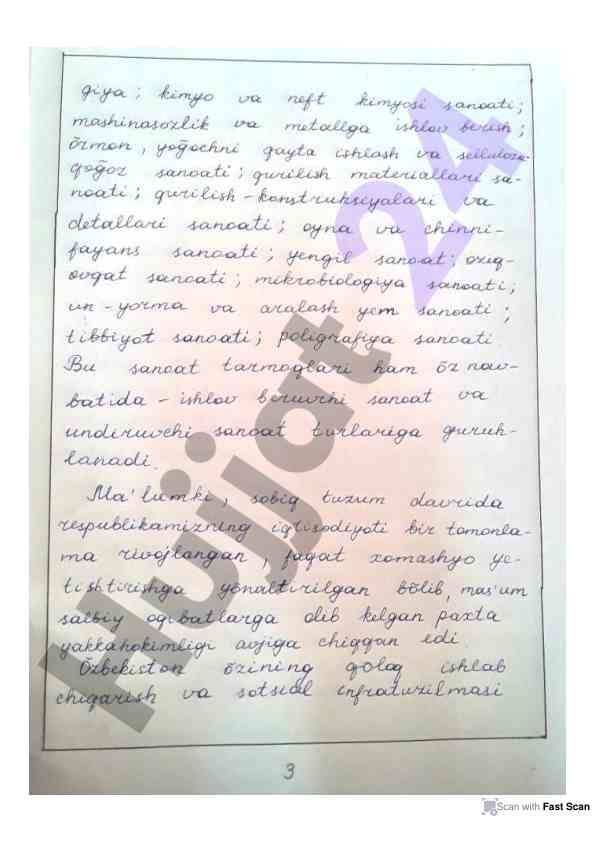 giya; kimyo va neft kimyosi sanoati;
mashinasozlik va metallga ishlov berish;
õrmon, yoğochni qayta ishlash va selluloza-
qoğoz sanoati; qurilish materiallari sa-
noati; qurilish-konstruksiyalari va
detallari sanoati; oyna va chinni-
fayans sanoati; yengil sanoat; oziq-
ovqat sanoati; mikrobiologiya sanoati;
un-yorma va aralash yem sanoati;
tibbiyot sanoati; poligrafiya sanoati.
Bu sanoat tarmoqlari ham õz nav-
batida - ishlov beruvchi sanoat va
undiruvchi sanoat turlariga guruh-
lanadi.
Ma'lumki, sobiq tuzum davrida
respublikamizning iqtisodiyoti bir tomonla-
ma rivojlangan, faqat xomashyo ye-
tishtirishga yõnaltirilgan bõlib, mas'um
salbiy oqibatlarga olib kelgan paxta
yakkahokimligi avjiga chiqqan edi.
Õzbekiston õzining qoloq ishlab
chiqarish va sotsial infratuzilmasi
3
Hujjat 24
Scan with Fast Scan